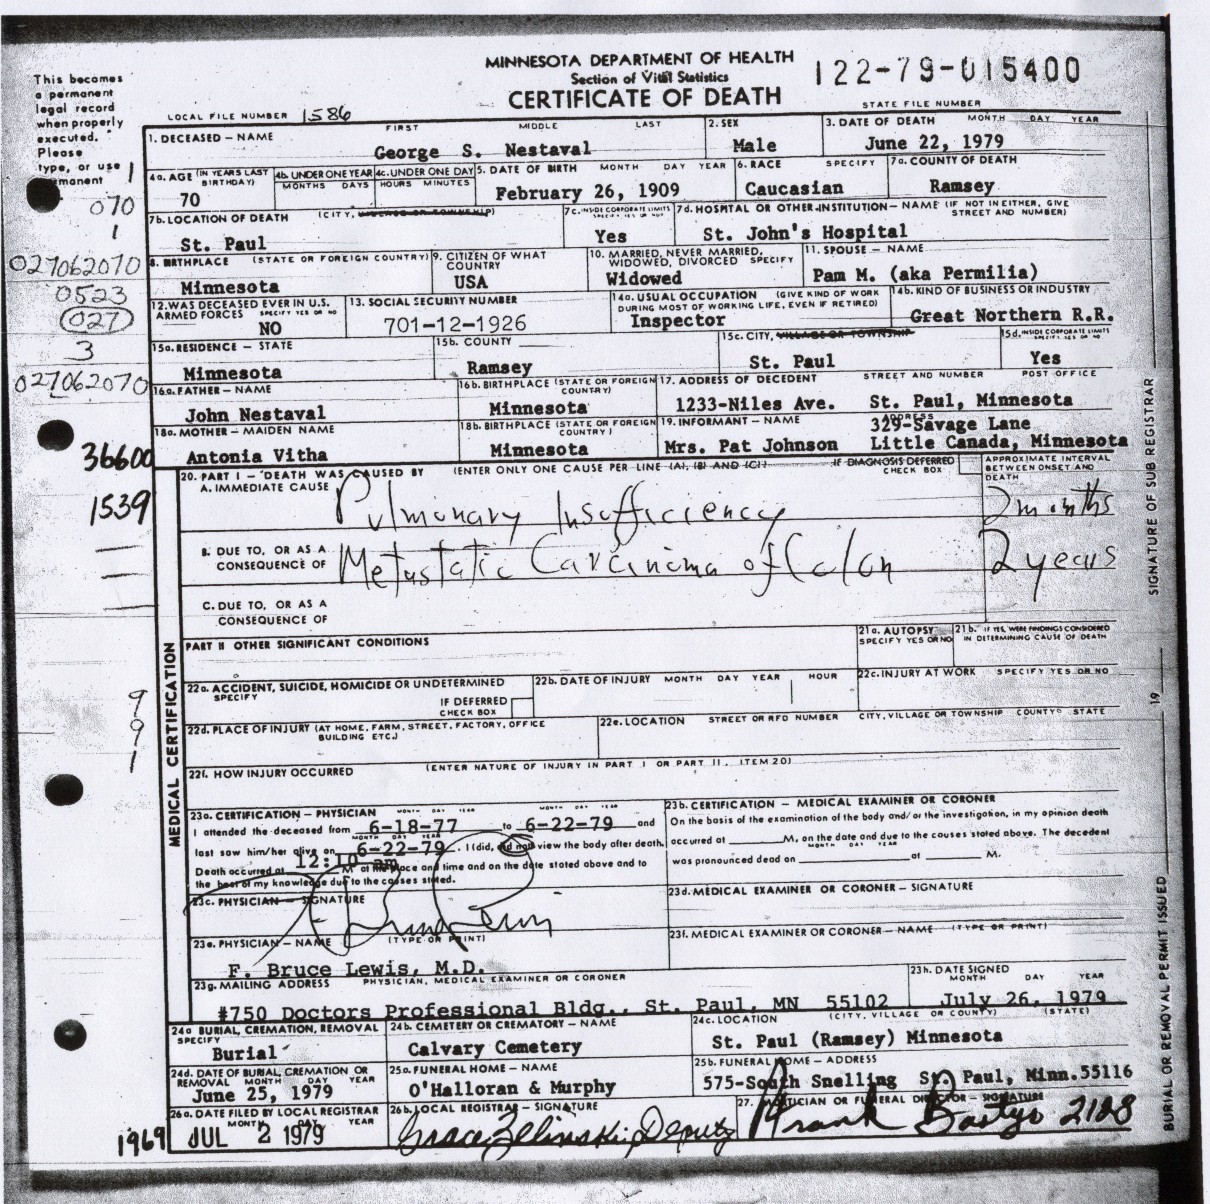 MINNESOTA DEPARTMENT OF HEALTH
Section of Vital Statistics
CERTIFICATE OF DEATH
122-79-015400
STATE FILE NUMBER
This becomes
a permanent
legal record
when properly
executed.
Please
type, or use
LOCAL FILE NUMBER 1586
1. DECEASED - NAME FIRST MIDDLE LAST
George S. Nestaval
2. SEX
Male
3. DATE OF DEATH MONTH DAY YEAR
June 22, 1979
4a. AGE (IN YEARS LAST BIRTHDAY)
70
4b. UNDER ONE YEAR
MONTHS DAYS
4c. UNDER ONE DAY
HOURS MINUTES
5. DATE OF BIRTH MONTH DAY YEAR
February 26, 1909
6. RACE SPECIFY
Caucasian
7a. COUNTY OF DEATH
Ramsey
070
1
7b. LOCATION OF DEATH (CITY, VILLAGE OR TOWNSHIP)
St. Paul
7c. INSIDE CORPORATE LIMITS SPECIFY YES OR NO
Yes
7d. HOSPITAL OR OTHER INSTITUTION - NAME (IF NOT IN EITHER, GIVE STREET AND NUMBER)
St. John's Hospital
027062070
8. BIRTHPLACE (STATE OR FOREIGN COUNTRY)
Minnesota
9. CITIZEN OF WHAT COUNTRY
USA
10. MARRIED, NEVER MARRIED, WIDOWED, DIVORCED SPECIFY
Widowed
11. SPOUSE - NAME
Pam M. (aka Permilia)
0523
027
12. WAS DECEASED EVER IN U.S. ARMED FORCES SPECIFY YES OR NO
NO
13. SOCIAL SECURITY NUMBER
701-12-1926
14a. USUAL OCCUPATION (GIVE KIND OF WORK DURING MOST OF WORKING LIFE, EVEN IF RETIRED)
Inspector
14b. KIND OF BUSINESS OR INDUSTRY
Great Northern R.R.
3
15a. RESIDENCE - STATE
Minnesota
15b. COUNTY
Ramsey
15c. CITY, VILLAGE OR TOWNSHIP
St. Paul
15d. INSIDE CORPORATE LIMITS SPECIFY YES OR NO
Yes
027062070
16a. FATHER - NAME
John Nestaval
16b. BIRTHPLACE (STATE OR FOREIGN COUNTRY)
Minnesota
17. ADDRESS OF DECEDENT STREET AND NUMBER POST OFFICE
1233-Niles Ave. St. Paul, Minnesota
18a. MOTHER - MAIDEN NAME
Antonia Vitha
18b. BIRTHPLACE (STATE OR FOREIGN COUNTRY)
Minnesota
19. INFORMANT - NAME ADDRESS
Mrs. Pat Johnson
329-Savage Lane
Little Canada, Minnesota
36600
1539
MEDICAL CERTIFICATION
20. PART I - DEATH WAS CAUSED BY (ENTER ONLY ONE CAUSE PER LINE (A), (B) AND (C)) IF DIAGNOSIS DEFERRED CHECK BOX
APPROXIMATE INTERVAL BETWEEN ONSET AND DEATH
A. IMMEDIATE CAUSE
Pulmonary Insufficiency 2 months
B. DUE TO, OR AS A CONSEQUENCE OF
Metastatic Carcinoma of Colon 2 years
C. DUE TO, OR AS A CONSEQUENCE OF
PART II OTHER SIGNIFICANT CONDITIONS
21a. AUTOPSY SPECIFY YES OR NO
21b. IF YES, WERE FINDINGS CONSIDERED IN DETERMINING CAUSE OF DEATH
22a. ACCIDENT, SUICIDE, HOMICIDE OR UNDETERMINED SPECIFY
IF DEFERRED CHECK BOX
22b. DATE OF INJURY MONTH DAY YEAR HOUR
22c. INJURY AT WORK SPECIFY YES OR NO
9
9
1
22d. PLACE OF INJURY (AT HOME, FARM, STREET, FACTORY, OFFICE BUILDING ETC.)
22e. LOCATION STREET OR RFD NUMBER CITY, VILLAGE OR TOWNSHIP COUNTY STATE
22f. HOW INJURY OCCURRED (ENTER NATURE OF INJURY IN PART I OR PART II, ITEM 20)
23a. CERTIFICATION - PHYSICIAN MONTH DAY YEAR MONTH DAY YEAR
I attended the deceased from 6-18-77 to 6-22-79 and
last saw him/her alive on 6-22-79. I (did, did not) view the body after death.
Death occurred at 12:10 am M at the place and time and on the date stated above and to
the best of my knowledge due to the causes stated.
23b. CERTIFICATION - MEDICAL EXAMINER OR CORONER
On the basis of the examination of the body and/or the investigation, in my opinion death
occurred at M, on the date and due to the causes stated above. The decedent
MONTH DAY YEAR
was pronounced dead on at M.
23c. PHYSICIAN - SIGNATURE
23d. MEDICAL EXAMINER OR CORONER - SIGNATURE
23e. PHYSICIAN - NAME (TYPE OR PRINT)
F. Bruce Lewis, M.D.
23f. MEDICAL EXAMINER OR CORONER - NAME (TYPE OR PRINT)
23g. MAILING ADDRESS PHYSICIAN, MEDICAL EXAMINER OR CORONER
#750 Doctors Professional Bldg., St. Paul, MN 55102
23h. DATE SIGNED MONTH DAY YEAR
July 26, 1979
24a BURIAL, CREMATION, REMOVAL SPECIFY
Burial
24b. CEMETERY OR CREMATORY - NAME
Calvary Cemetery
24c. LOCATION (CITY, VILLAGE OR COUNTY) (STATE)
St. Paul (Ramsey) Minnesota
24d. DATE OF BURIAL, CREMATION OR REMOVAL MONTH DAY YEAR
June 25, 1979
25a. FUNERAL HOME - NAME
O'Halloran & Murphy
25b. FUNERAL HOME - ADDRESS
575-South Snelling St. Paul, Minn. 55116
26a. DATE FILED BY LOCAL REGISTRAR MONTH DAY YEAR
JUL 2 1979
26b. LOCAL REGISTRAR - SIGNATURE
Deputy
27. MORTICIAN OR FUNERAL DIRECTOR - SIGNATURE
Frank 2128
1969
SIGNATURE OF SUB REGISTRAR
19
BURIAL OR REMOVAL PERMIT ISSUED